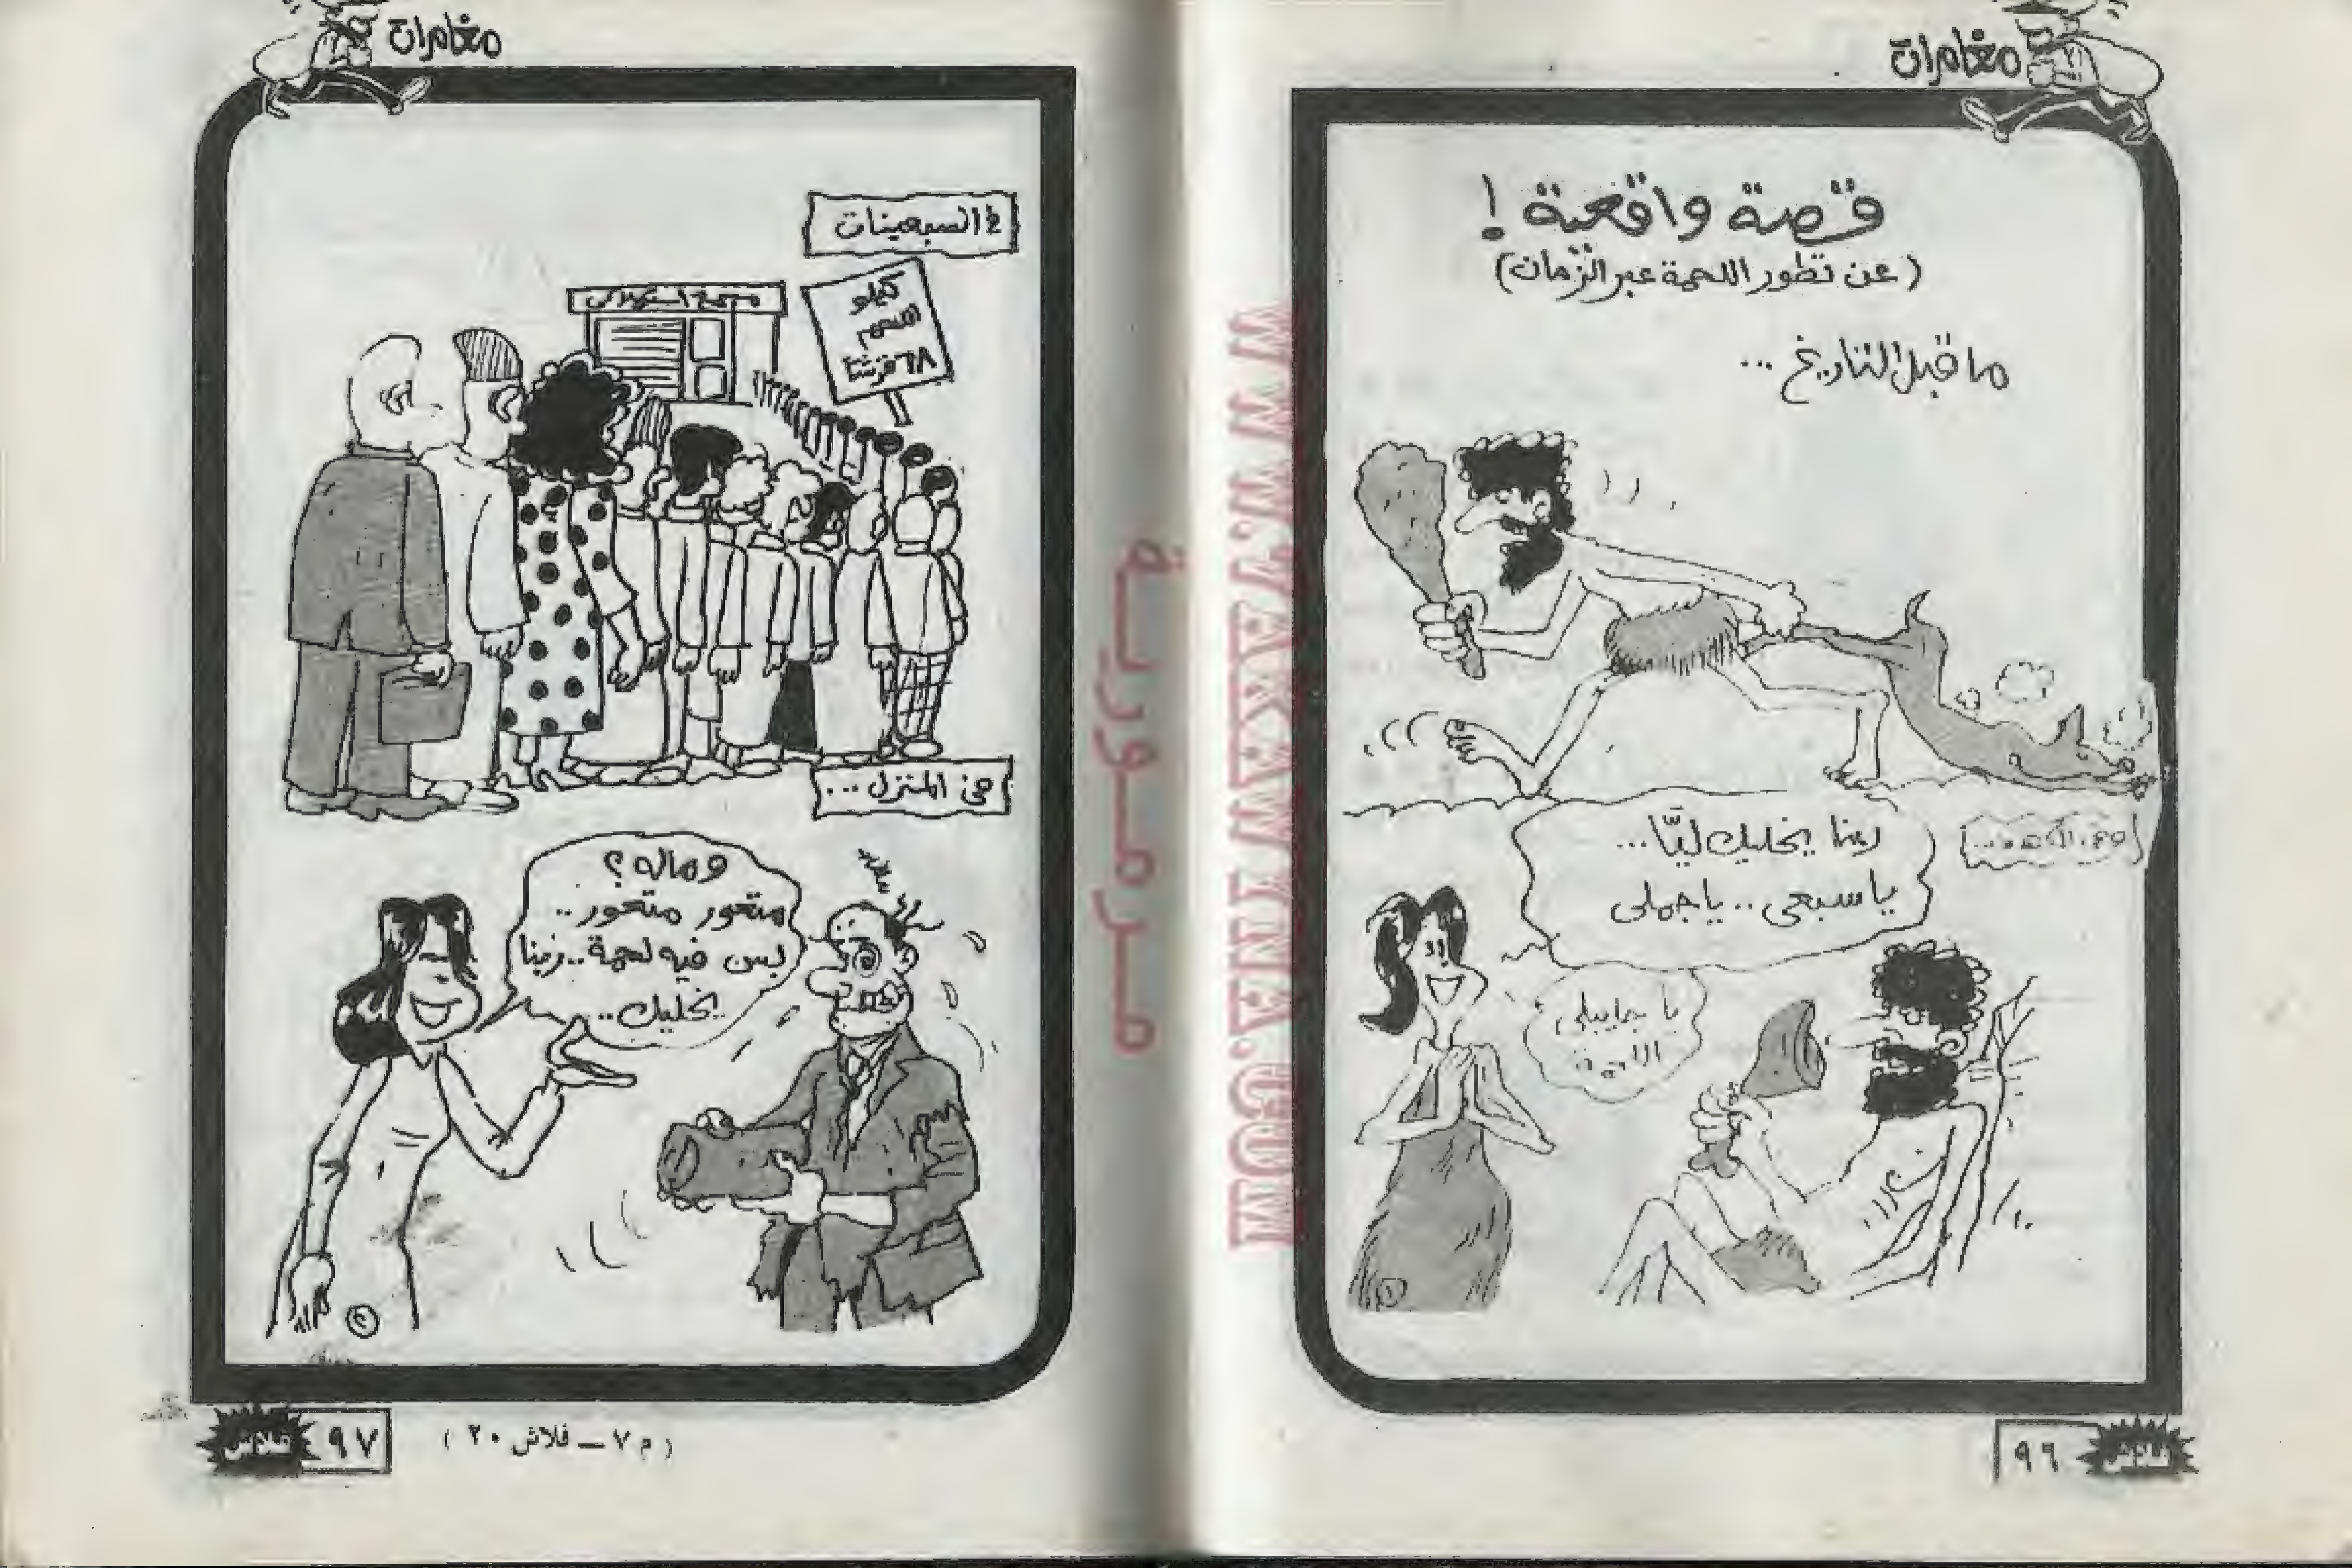 مغامرات
قصة واقعية !
( عن تطور اللحمة عبر الزمان )
ما قبل التاريخ ...
ربنا يخليك ليّا ...
يا سبعى .. يا جملى
يا جايبلى
اللحمة
٩٦
فلاش
مغامرات
فى السبعينات
كيلو
اللحم
٦٨ قرشا
فى المنزل ...
وماله ؟
متعور متعور ..
بس فيه لحمة .. ربنا
يخليك ..
٩٧
فلاش
( م ٧ – فلاش ٢٠ )